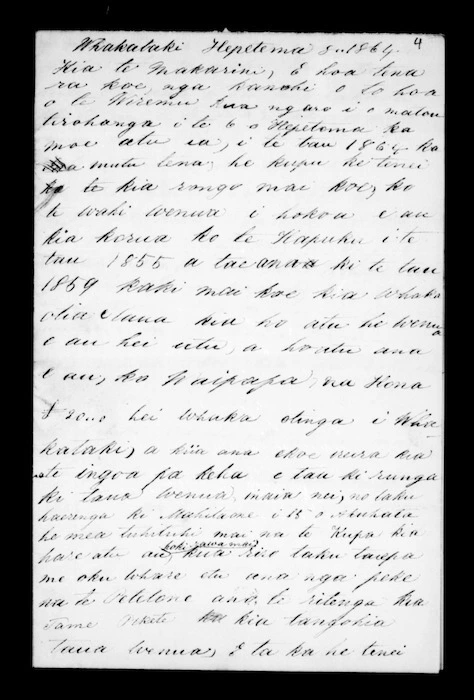 4
Whakataki Hepetema 8. 1864.
Kia te Makarini, E hoa tena
ra koe, nga kanohi o to hoa
o te Wiremu kua ngaro i o matou
tirohanga i te 6 o Hepetema ka
moe atu ia, i te tau 1864 ka
mutu tena, he kupu ke tenei
te kia rongo mai koe, ko
te wahi wenua i hokoa e au
kia korua ko te Hapuku i te
tau 1855 a tae ana ki te tau
1859 kahi mai koe kia whaka
otia taua kia ho atu he wenua
e au hei utu, a hoatu ana
e au, ko Waipapa, na Kona
hei whaka otinga i Wha
kataki, a kiia ana ekoe mera kia
te ingoa pa keha e tau ki runga
ki taua wenua, maia nei, no taku
haerenga ki i 15 o Akuhata
he mea tuhituhi mai na te Kupa kia
hoki rawa mai
haere atu au, kua riro taku taepa
me oku whare etu ana nga peke
na te ana, te ritenga kia
Tame kia tangohia
taua wenua, E ta ka he tenei